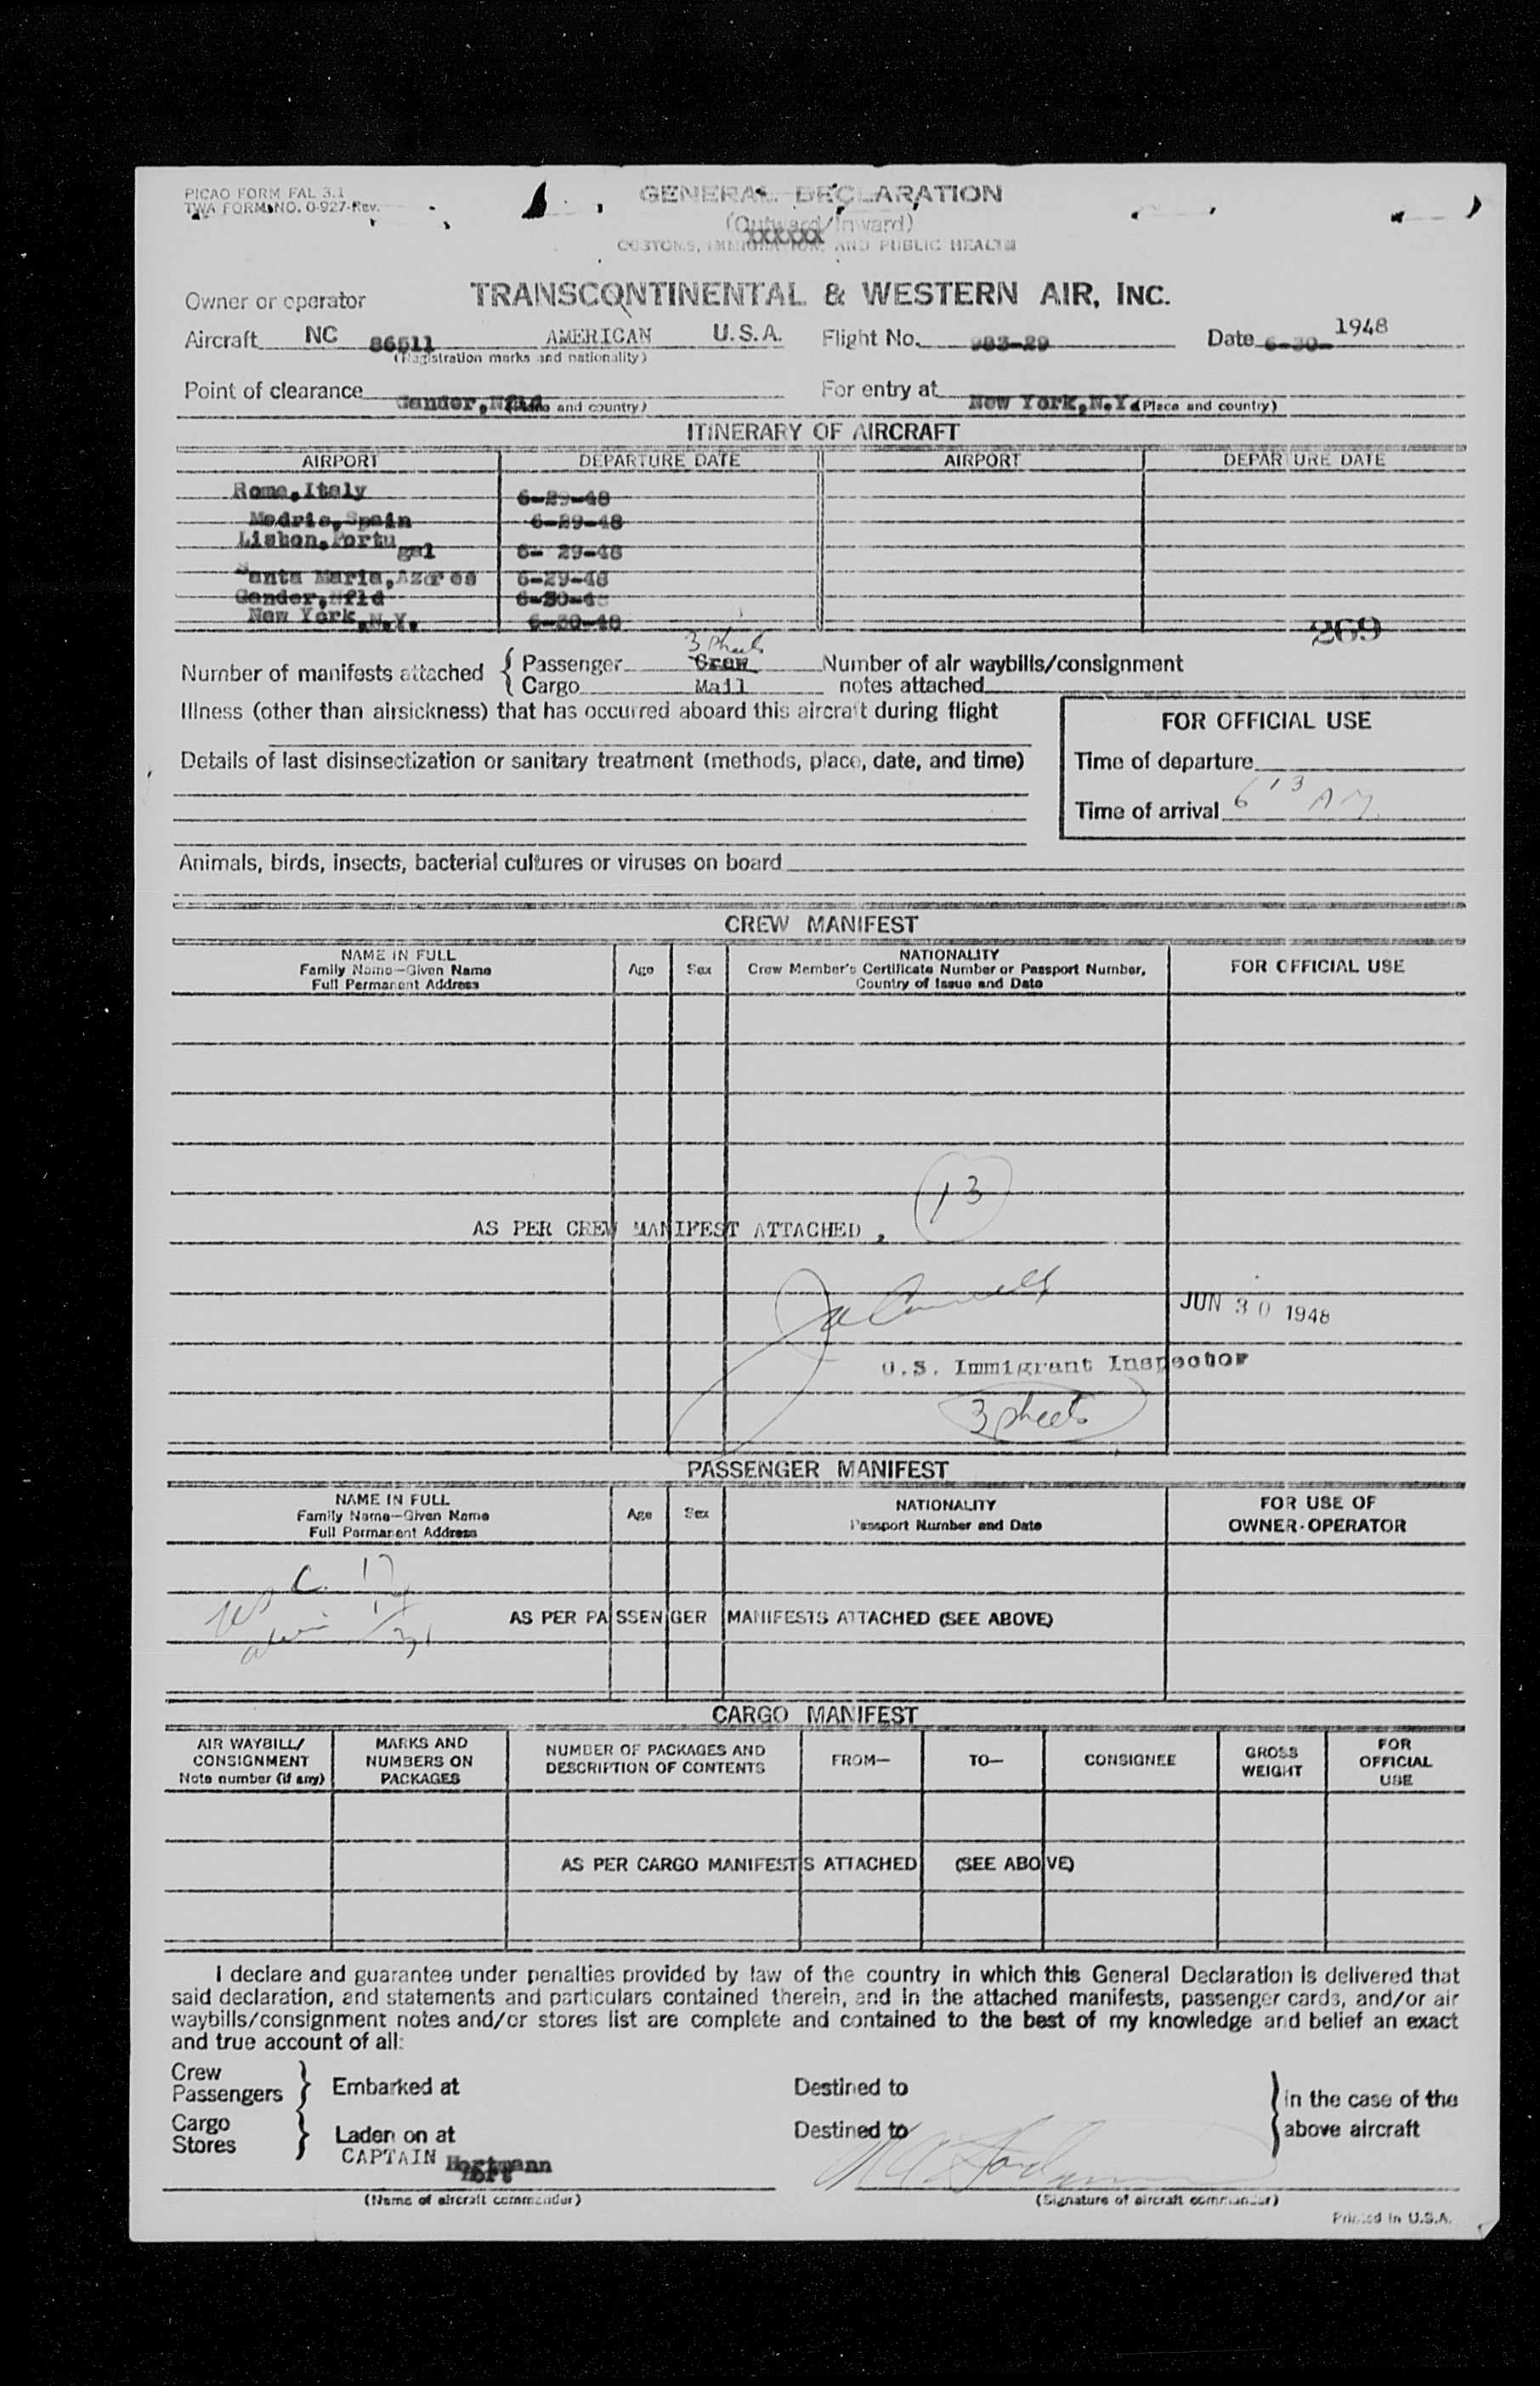 PICAO FORM FAL 3.1
TWA FORM NO. 0-927-Rev.
GENERAL DECLARATION
(Outward/Inward)
xxxxxx
CUSTOMS, IMMIGRATION, AND PUBLIC HEALTH
Owner or operator TRANSCONTINENTAL & WESTERN AIR, INC.
Aircraft NC 86511 AMERICAN U.S.A. Flight No. 983-29 Date 6-30- 1948
(Registration marks and nationality)
Point of clearance Gander, Nfld (Place and country) For entry at New York, N.Y. (Place and country)
ITINERARY OF AIRCRAFT
AIRPORT DEPARTURE DATE AIRPORT DEPARTURE DATE
Rome, Italy 6-29-48
Madris, Spain 6-29-48
Lisbon, Portugal 6- 29-48
Santa Maria, Azores 6-29-48
Gander, Nfld 6-30-48
New York, N.Y. 6-30-48
269
3 sheets
Number of manifests attached { Passenger Crew Number of air waybills/consignment
Cargo Mail notes attached
Illness (other than airsickness) that has occurred aboard this aircraft during flight
FOR OFFICIAL USE
Details of last disinsectization or sanitary treatment (methods, place, date, and time)
Time of departure
Time of arrival 6 13 AM
Animals, birds, insects, bacterial cultures or viruses on board
CREW MANIFEST
NAME IN FULL
Family Name—Given Name
Full Permanent Address
Age Sex
NATIONALITY
Crew Member's Certificate Number or Passport Number,
Country of Issue and Date
FOR OFFICIAL USE
13
AS PER CREW MANIFEST ATTACHED ,
JUN 30 1948
U.S. Immigrant Inspector
3 sheets
PASSENGER MANIFEST
NAME IN FULL
Family Name—Given Name
Full Permanent Address
Age Sex
NATIONALITY
Passport Number and Date
FOR USE OF
OWNER-OPERATOR
C. 17
AS PER PASSENGER MANIFESTS ATTACHED (SEE ABOVE)
CARGO MANIFEST
AIR WAYBILL/
CONSIGNMENT
Note number (if any)
MARKS AND
NUMBERS ON
PACKAGES
NUMBER OF PACKAGES AND
DESCRIPTION OF CONTENTS
FROM— TO— CONSIGNEE
GROSS
WEIGHT
FOR
OFFICIAL
USE
AS PER CARGO MANIFESTS ATTACHED (SEE ABOVE)
I declare and guarantee under penalties provided by law of the country in which this General Declaration is delivered that
said declaration, and statements and particulars contained therein, and in the attached manifests, passenger cards, and/or air
waybills/consignment notes and/or stores list are complete and contained to the best of my knowledge and belief an exact
and true account of all:
Crew
Passengers } Embarked at Destined to
Cargo
Stores } Laden on at Destined to
in the case of the
above aircraft
CAPTAIN
(Name of aircraft commander) (Signature of aircraft commander)
Printed in U.S.A.